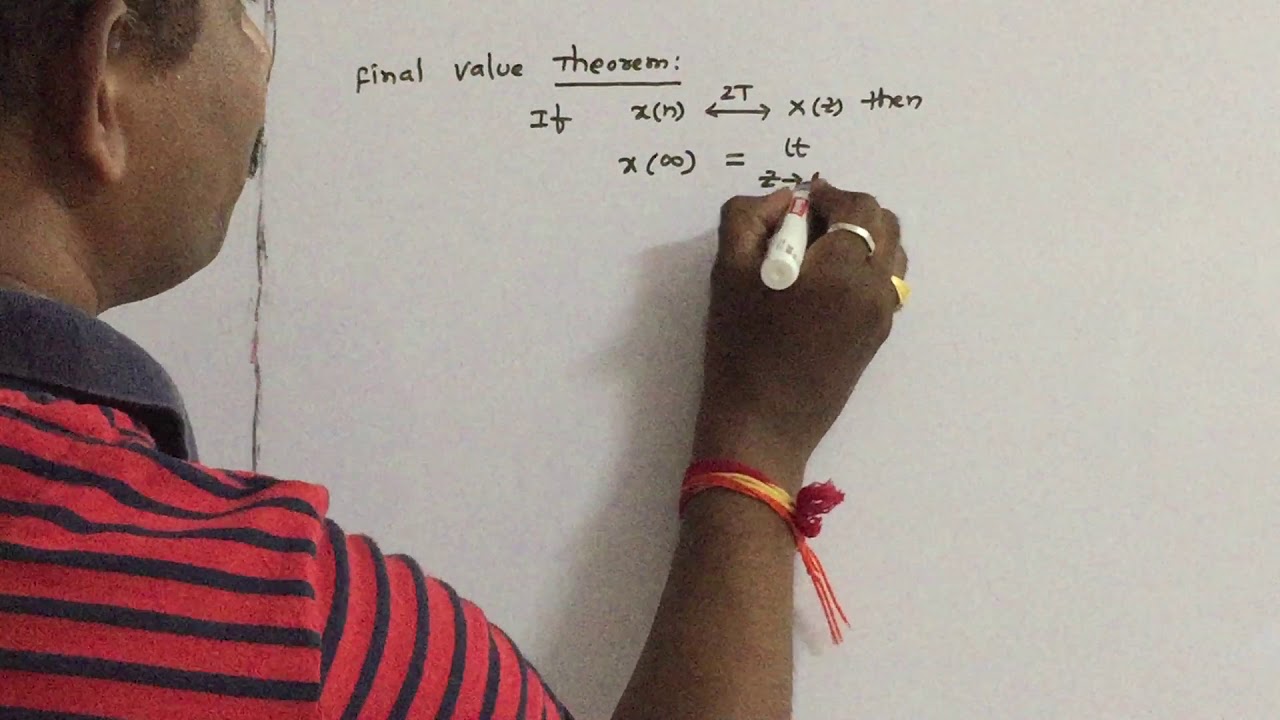 Final value Theorem:
If x(n) ⟷ ZT X(z) then
x(∞) = lt
z→